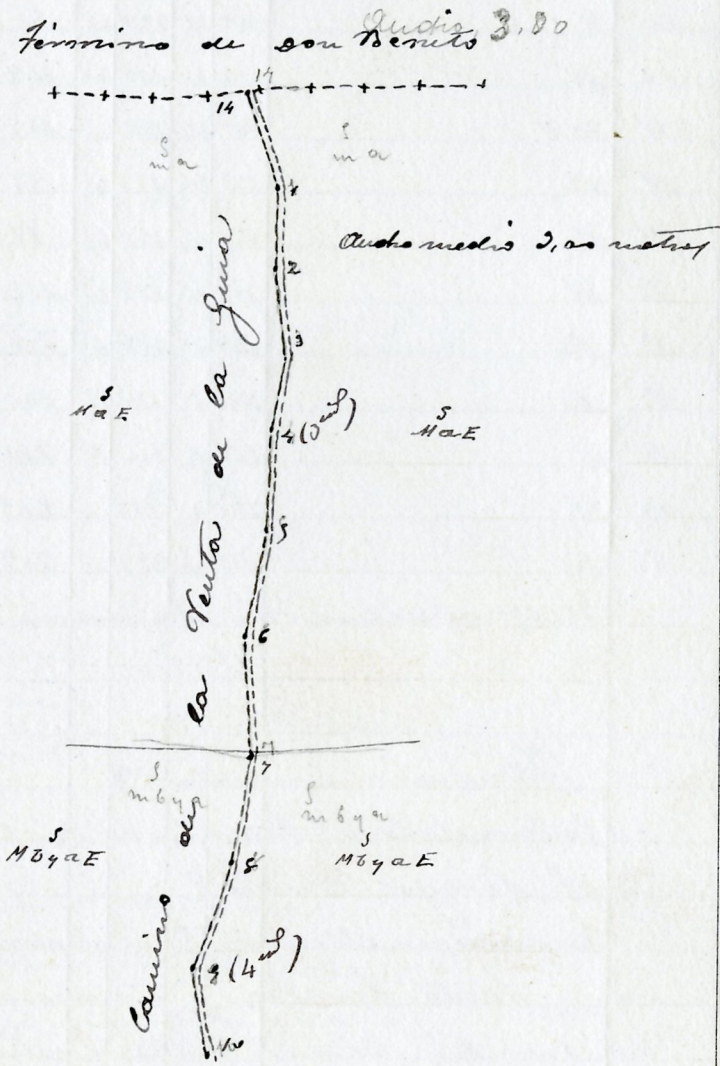 Ancho 3,00
Término de Don Benito
14
14
S
m a
S
m a
1
Ancho medio 3,00 metros
2
3
S
M a E
4 (3
S
M a E
5
6
7
S
m b y a
S
m b y a
S
M b y a E
S
M b y a E
8
9 (4
10
Camino de la Venta de la Guia